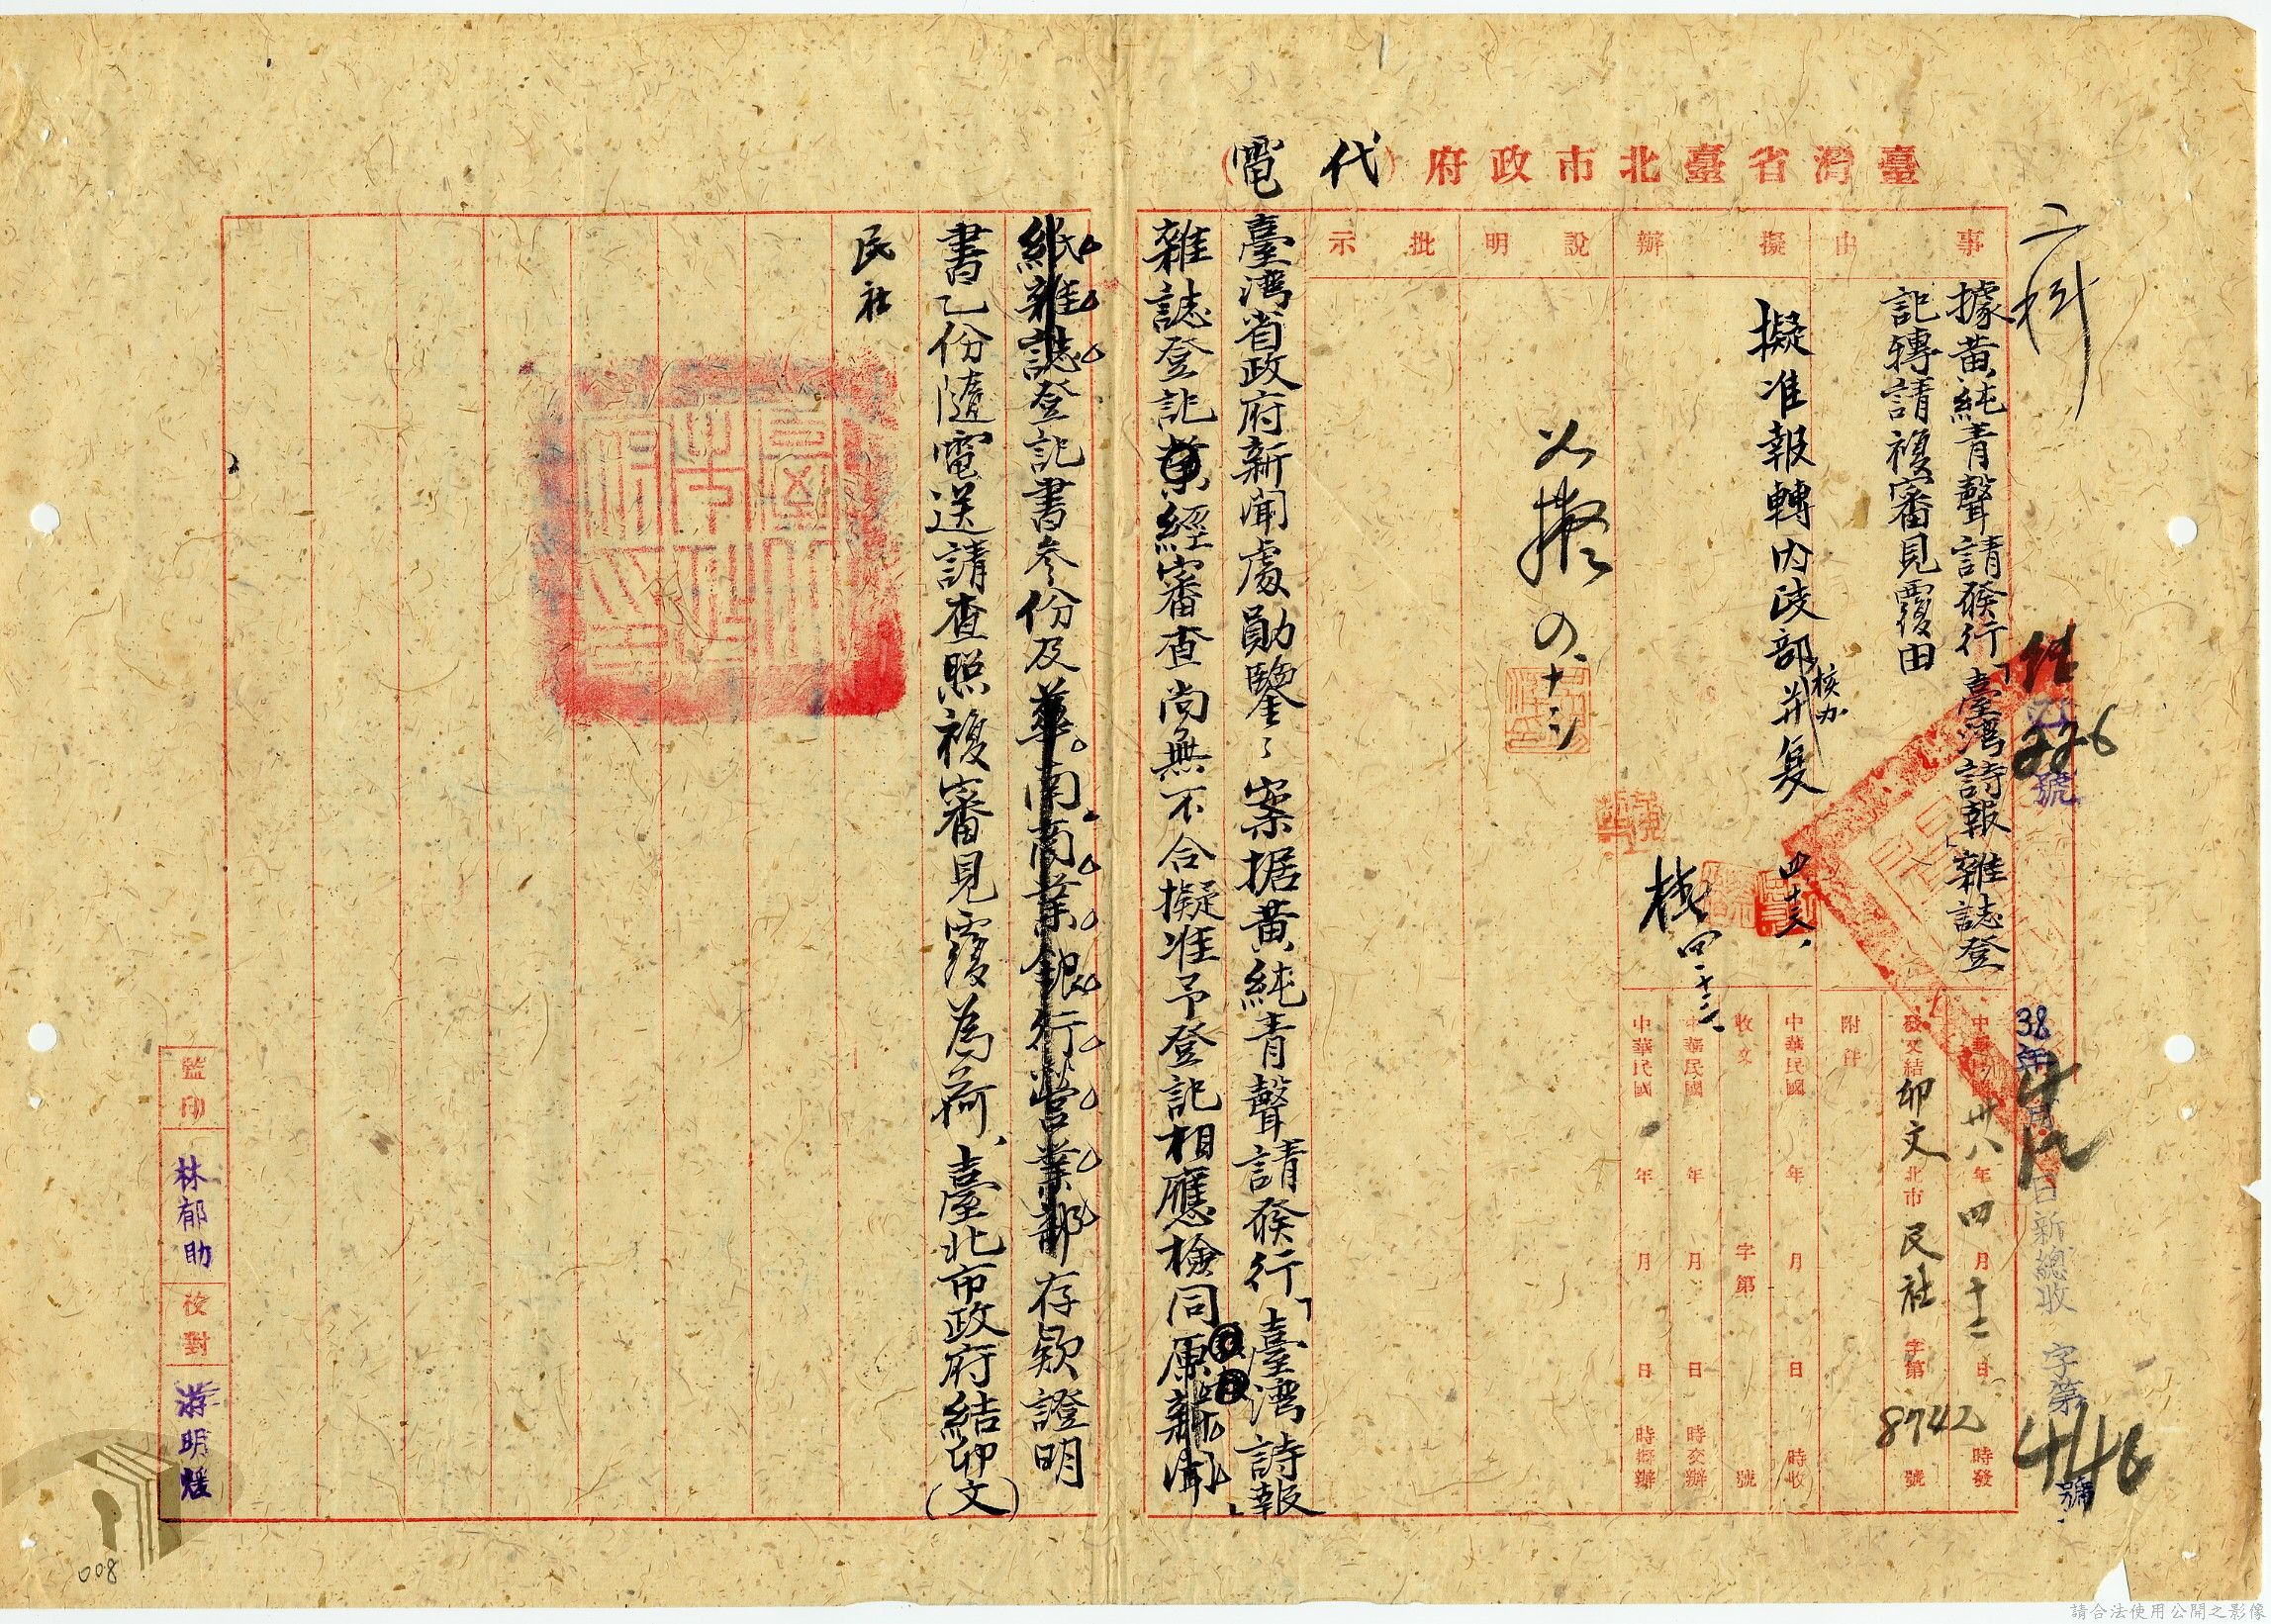 臺灣省臺北市政府(代電)
二科
事由
據黃純青聲請發行「臺灣詩報」雜誌登
記轉請複審見覆由
擬辦
擬准報轉內政部核办并复
四十三、
說明
四、十三、
批示
如擬 四、十三
中華民國卅八年四月十二日時發
發文結卯文北市民社字第8742號
附件
中華民國 年 月 日 時收
收文 字第 號
中華民國 年 月 日 時交辦
中華民國 年 月 日 時擬辦
226號
38年4月 日新總收字第446號
臺灣省政府新聞處勛鑒:案据黃純青聲請發行「臺灣詩報」
雜誌登記業經審查尚無不合擬准予登記相應檢同原新聞
紙雜誌登記書叁份及華南商業銀行營業部存款證明
書乙份隨電送請查照複審見覆為荷、臺北市政府結卯(文)
民社
監印 林郁助 校對 游明煖
008
請合法使用公開之影像